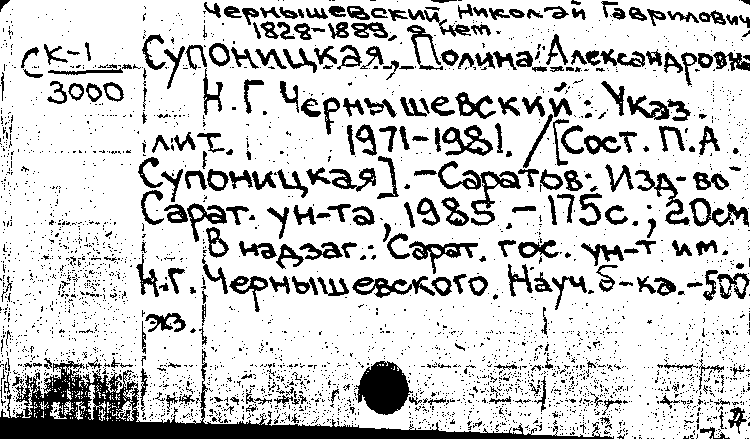 Чернышевский, Николай Гаврилович,
1828-1889, о нем.
Супоницкая, Полина Александровна
С К-1
3000
Н.Г. Чернышевский: Указ.
лит. 1971-1981. / [Сост. П.А.
Супоницкая]. - Саратов: Изд-во
Сарат. ун-та, 1985. - 175с.; 20см
В надзаг.: Сарат. гос. ун-т им.
Н.Г. Чернышевского. Науч. б-ка. - 500
экз.